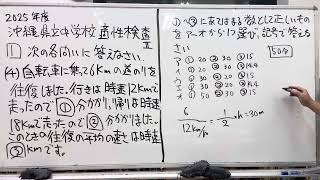 2025年度
沖縄県立中学校 適性検査Ⅱ
1 次の各問いに答えなさい。
(4)自転車に乗って6kmの道のりを
往復しました。行きは時速12kmで
走ったので①分かかり、帰りは時速
18kmで走ったので②分かかりました。
このときの往復の平均の速さは時速
③kmです。
①~③にあてはまる数として正しいもの
をア~オから1つ選び、記号で答えな
さい
50点
ア ① 20 ② 30 ③ 15
イ ① 30 ② 20 ③ 14.4
ウ ① 30 ② 20 ③ 15
オ ① 50 ② 30 ③ 15
6/12km/h = 1/2 h = 30m